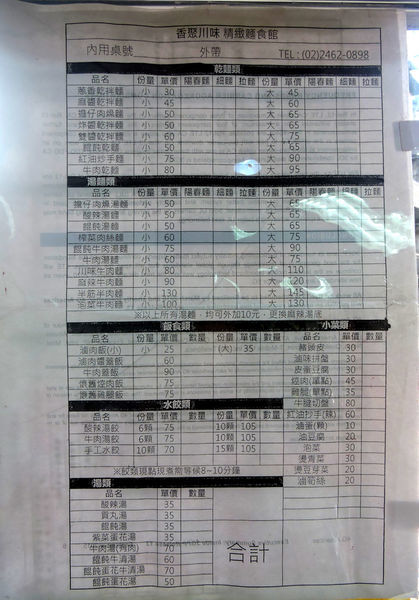 香聚川味 精緻麵食館
內用桌號 外帶 TEL : (02)2462-0898
乾麵類
品名 份量 單價 陽春麵 細麵 拉麵 份量 單價 陽春麵 細麵 拉麵
蔥香乾拌麵 小 30 大 45
麻醬乾拌麵 小 45 大 60
擔仔肉燥麵 小 50 大 65
炸醬乾拌麵 小 50 大 65
雙醬乾拌麵 小 60 大 75
餛飩乾麵 小 50 大 65
紅油炒手麵 小 75 大 90
牛肉乾麵 小 80 大 95
湯麵類
品名 份量 單價 陽春麵 細麵 拉麵 份量 單價 陽春麵 細麵 拉麵
擔仔肉燥湯麵 小 50 大 65
酸辣湯麵 小 50 大 65
餛飩湯麵 小 50 大 65
榨菜肉絲麵 小 60 大 75
餛飩牛肉湯麵 小 75 大 90
牛肉湯麵 小 60 大 75
川味牛肉麵 小 80 大 110
麻辣牛肉麵 小 90 大 120
半筋半肉麵 小 130 大 145
泡菜牛肉麵 小 100 大 130
※以上所有湯麵，均可外加10元，更換麻辣湯底
飯食類 小菜類
品名 份量 單價 數量 份量 單價 數量 品名 單價 數量
滷肉飯(小) 小 25 (大) 35 豬頭皮 30
滷肉燴蓋飯 60 滷味拼盤 30
牛肉蓋飯 90 皮蛋豆腐 30
懷舊焢肉飯 75 焢肉(單點) 45
懷舊雞腿飯 75 雞腿(單點) 35
水餃類 牛腱切盤 80
品名 份量 單價 數量 份量 單價 數量 紅油炒手(辣) 60
酸辣湯餃 6顆 75 10顆 105 滷蛋(顆) 10
牛肉湯餃 6顆 75 10顆 105 油豆腐 20
手工水餃 10顆 70 15顆 105 泡菜 30
燙青菜 30
※餃類現點現煮需等候8~10分鐘 燙豆芽菜 20
湯類 滷筍絲 20
品名 單價 數量
酸辣湯 35
貢丸湯 35
餛飩湯 35
紫菜蛋花湯 35
牛肉湯(有肉) 70
餛飩牛清湯 60
餛飩蛋花牛清湯 70
餛飩蛋花湯 50
合計